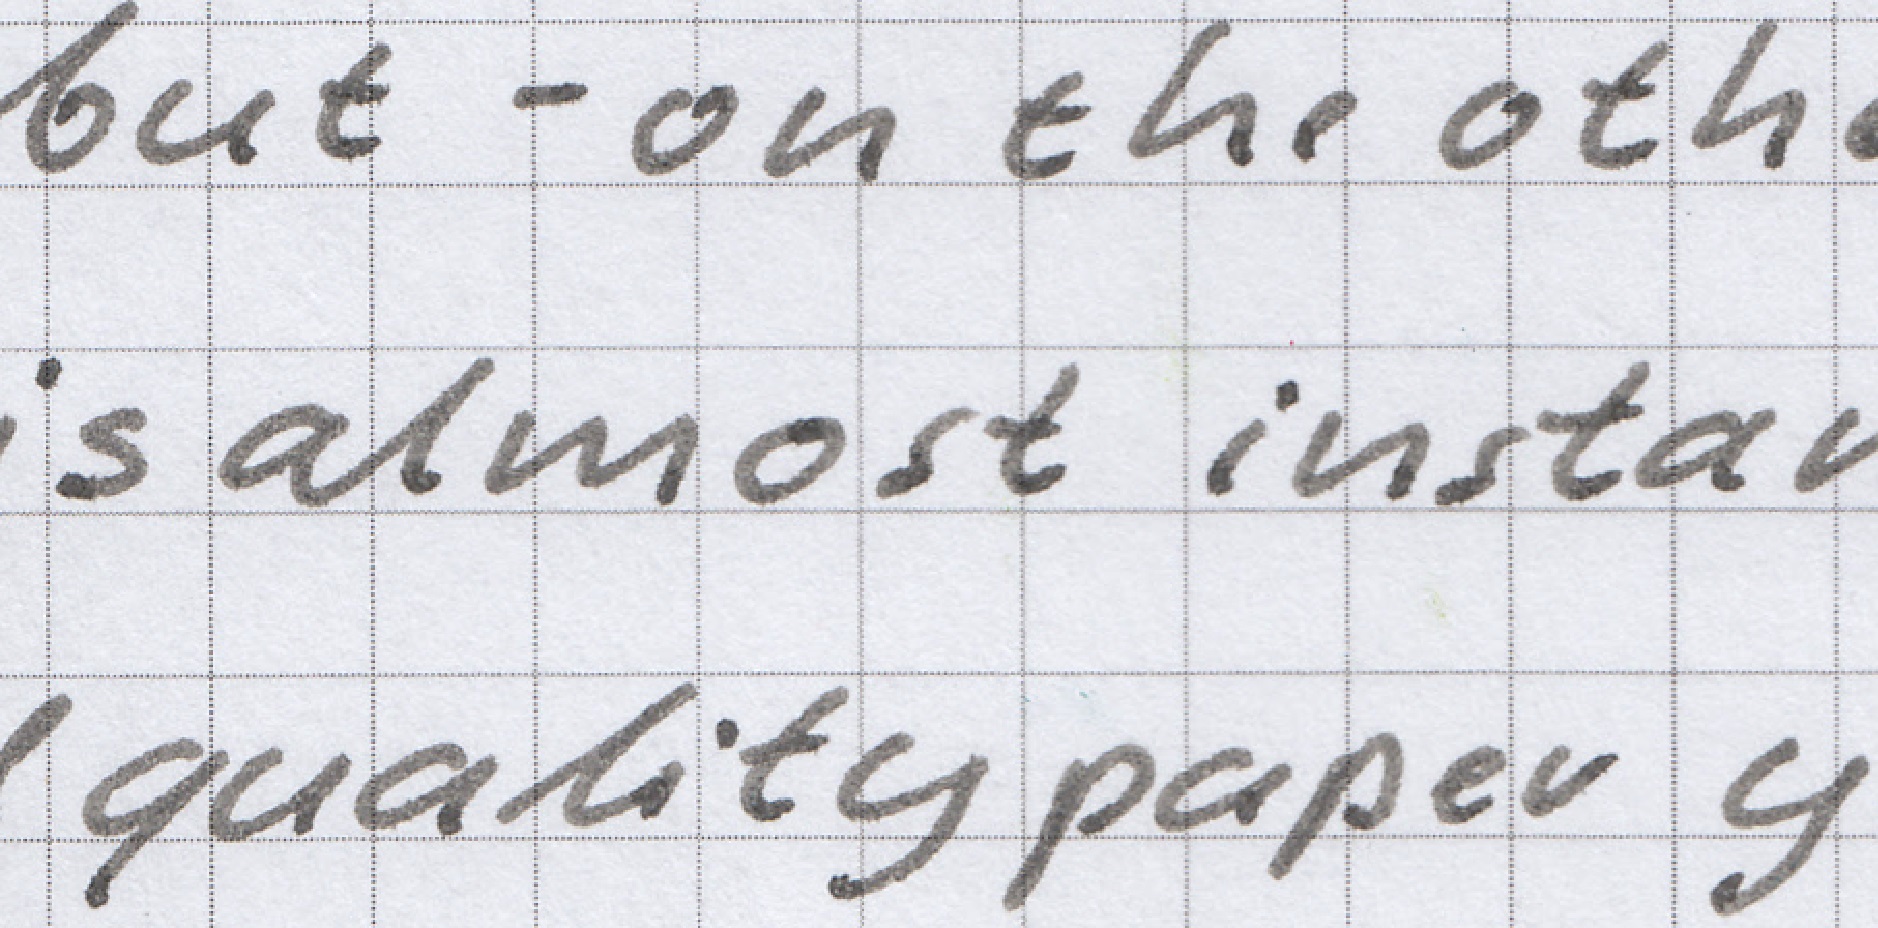 but - on the othe
is almost instan
l quality paper y